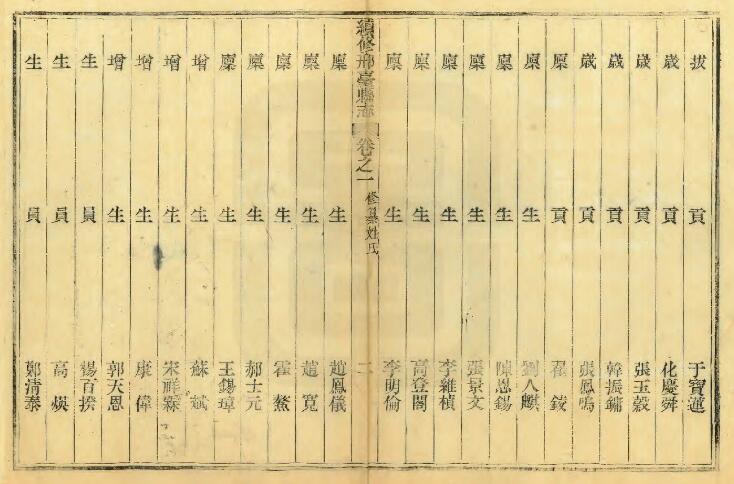 拔貢于寶蓮
歲貢化慶舜
歲貢張玉穀
歲貢韓振鏞
歲貢張鳳鳴
廩貢翟錂
廩生劉八麒
廩生陳恩錫
廩生張景文
廩生李維楨
廩生高登閣
廩生李明倫
續修邢臺縣志 卷之一 修纂姓氏 二
廩生趙鳳儀
廩生趙寬
廩生霍鰲
廩生郝士元
廩生王錫璋
增生蘇斌
增生宋祥霖
增生康偉
增生郭天恩
生員楊百揆
生員高煐
生員鄭清泰